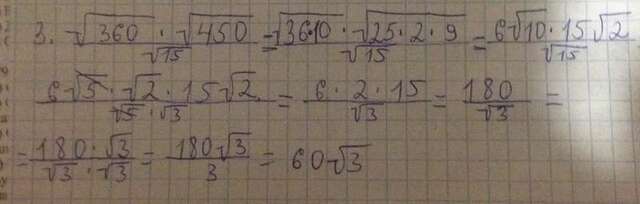 3. √360 · √450 / √15 = √36·10 · √25 · 2 · 9 / √15 = 6√10 · 15√2 / √15
6√5 · √2 · 15√2 / √5 · √3 = 6 · 2 · 15 / √3 = 180 / √3 =
= 180 · √3 / √3 · √3 = 180√3 / 3 = 60√3